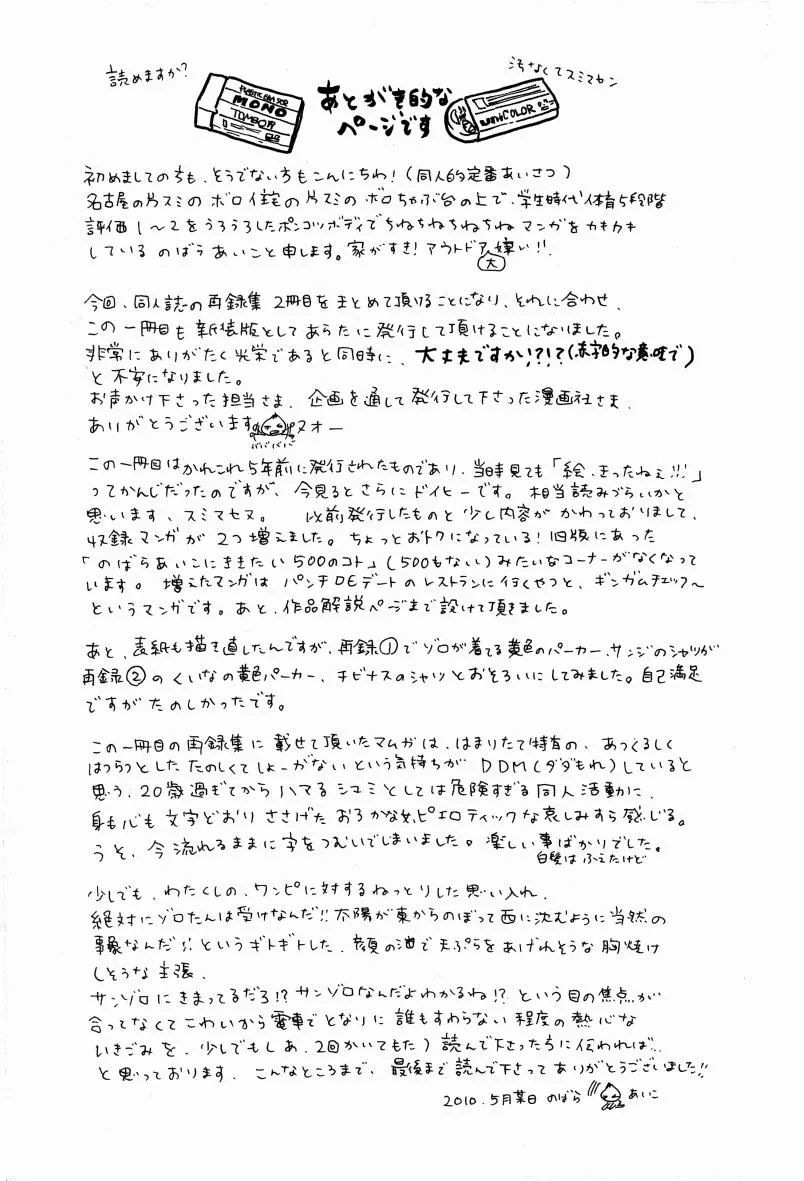 読めますか?
汚なくてスミマセン
PLASTIC ERASER
MONO
TOMBOW
あとがき的な
ページです
uni COLOR
初めましての方も、そうでない方もこんにちわ!(同人的定番あいさつ)
名古屋の片スミの ボロイ宅の片スミの ボロちゃぶ台の上で、学生時代体育5段階
評価1〜2をうろうろしたポンコツボディでちねちねちねちね マンガをカキカキ
している のばら あいこと申します。家がすき!アウトドア嫌い!!
大
今回、同人誌の再録集 2冊目をまとめて頂けることになり、それに合わせ、
この一冊目も新装版としてあらたに発行して頂けることになりました。
非常にありがたく光栄であると同時に、大丈夫ですか!?!?(赤字的な意味で)
と不安になりました。
お声かけ下さった担当さま、企画を通して発行して下さった漫画社さま、
ありがとうございます ヌオー
この一冊目はかれこれ5年前に発行されたものであり、当時見ても「絵、きったねぇ!!!」
ってかんじだったのですが、今見るとさらにドイヒーです。相当読みづらいかと
思います、スミマセヌ。 以前発行したものと少し内容が かわっておりまして、
収録マンガが2つ増えました。ちょっとおトクになっている!旧版にあった
「のばらあいこにききたい500のコト」(500もない)みたいなコーナーがなくなって
います。 増えたマンガは パンチDEデートのレストランに行くやつと、ギンガムチェック〜
というマンガです。あと、作品解説ページまで設けて頂きました。
あと、表紙も描き直したんですが、再録①でゾロが着てる黄色のパーカー、サンジのシャツが
再録②のくいなの黄色パーカー、チビナスのシャツとおそろいにしてみました。自己満足
ですがたのしかったです。
この一冊目の再録集に載せて頂いたマムガは、はまりたて特有の、あつくるしく
はつらつとした たのしくてしょーがないという気持ちが DDM(ダダもれ)していると
思う、20歳過ぎてから ハマるシュミとしては危険すぎる同人活動に、
身も心も文字どおり ささげた おろかな女、ピエロティックな哀しみすら感じる。
うそ、今流れるままに字をつむいでしまいました。楽しい事ばかりでした。
白髪は ふえたけど
少しでも、わたくしの、ワンピに対するねっとりした思い入れ、
絶対にゾロたんは受けなんだ!!太陽が東からのぼって西に沈むように当然の
事象なんだ!!というギトギトした、顔の油で天ぷらをあげれそうな胸焼け
しそうな主張、
サンゾロにきまってるだろ!?サンゾロなんだよわかるね!?という目の焦点が
合ってなくてこわいから電車でとなりに誰もすわらない程度の熱心な
いきごみを、少しでも(あ、2回かいてもた)読んで下さった方に伝われば…
と思っております。こんなところまで、最後まで読んで下さってありがとうございました!!
2010.5月某日 のばら あいこ